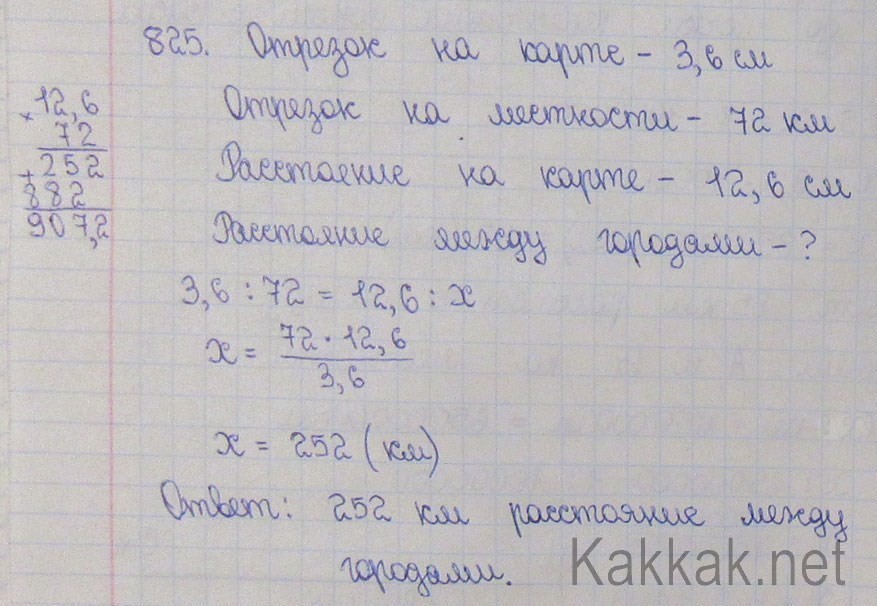 825. Отрезок на карте - 3,6 см
Отрезок на местности - 72 км
Расстояние на карте - 12,6 см
Расстояние между городами - ?
×12,6
72
+252
882
907,2
3,6 : 72 = 12,6 : x
x = 72 · 12,6 / 3,6
x = 252 (км)
Ответ: 252 км расстояние между
городами.
Kakkak.net